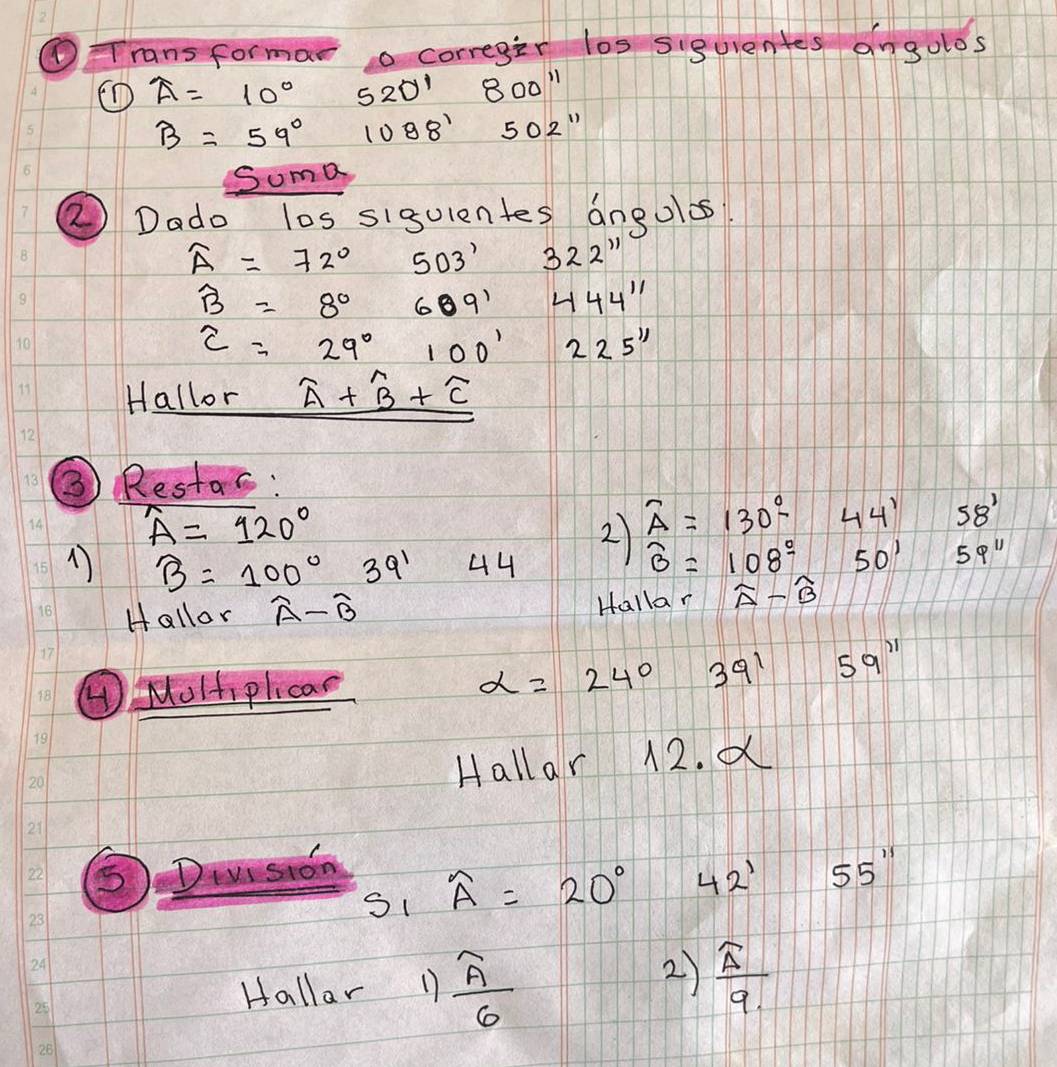 ① Transformar o corregir los siguientes ángulos
① Â = 10° 520' 800"
B̂ = 59° 1088' 502"
Suma
② Dado los siguientes ángulos:
Â = 72° 503' 322"
B̂ = 8° 609' 444"
Ĉ = 29° 100' 225"
Hallar Â + B̂ + Ĉ
③ Restar:
1) Â = 120°
B̂ = 100° 39' 44
Hallar Â - B̂
2) Â = 130° 44' 58'
B̂ = 108° 50' 59"
Hallar Â - B̂
④ Multiplicar α = 24° 39' 59"
Hallar 12.α
⑤ División Si Â = 20° 42' 55"
Hallar 1) Â/6 2) Â/9.
2
4
5
6
7
8
9
10
11
12
13
14
15
16
17
18
19
20
21
22
23
24
25
26